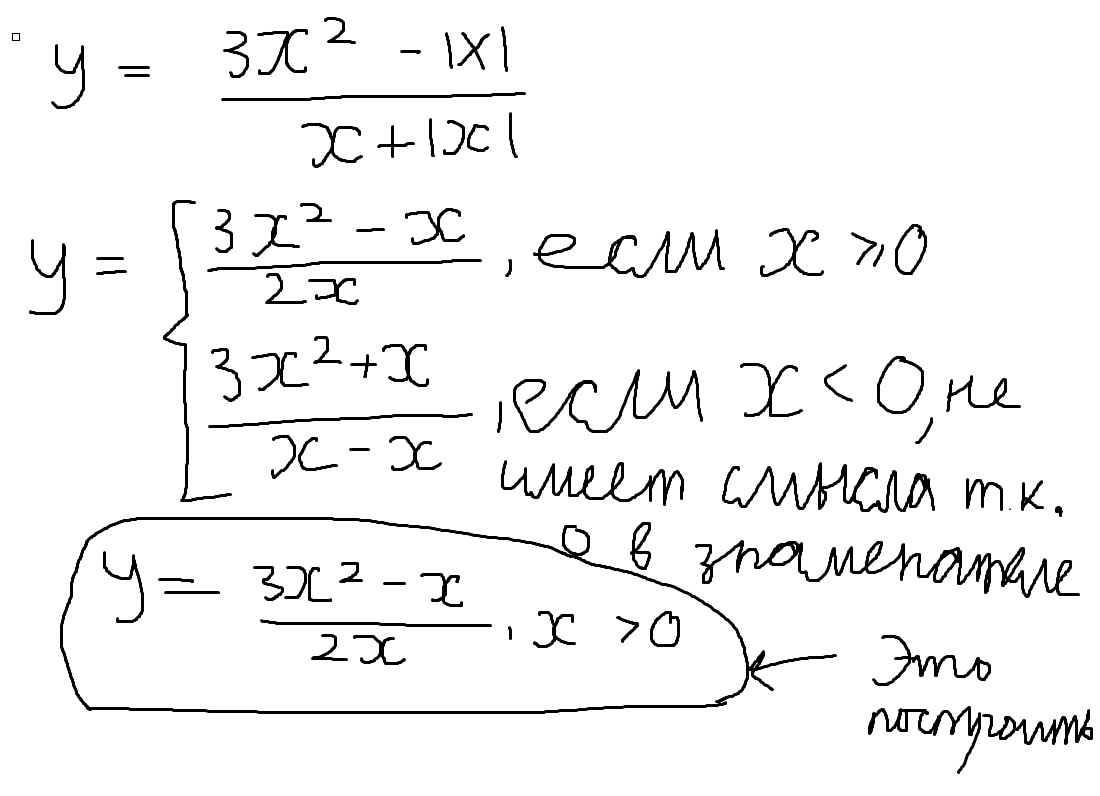 y = (3x² - |x|)/(x + |x|)
y = { (3x² - x)/(2x), если x ⩾ 0
(3x² + x)/(x - x), если x < 0, не
имеет смысла т.к.
0 в знаменателе
y = (3x² - x)/(2x), x > 0
Это
построить